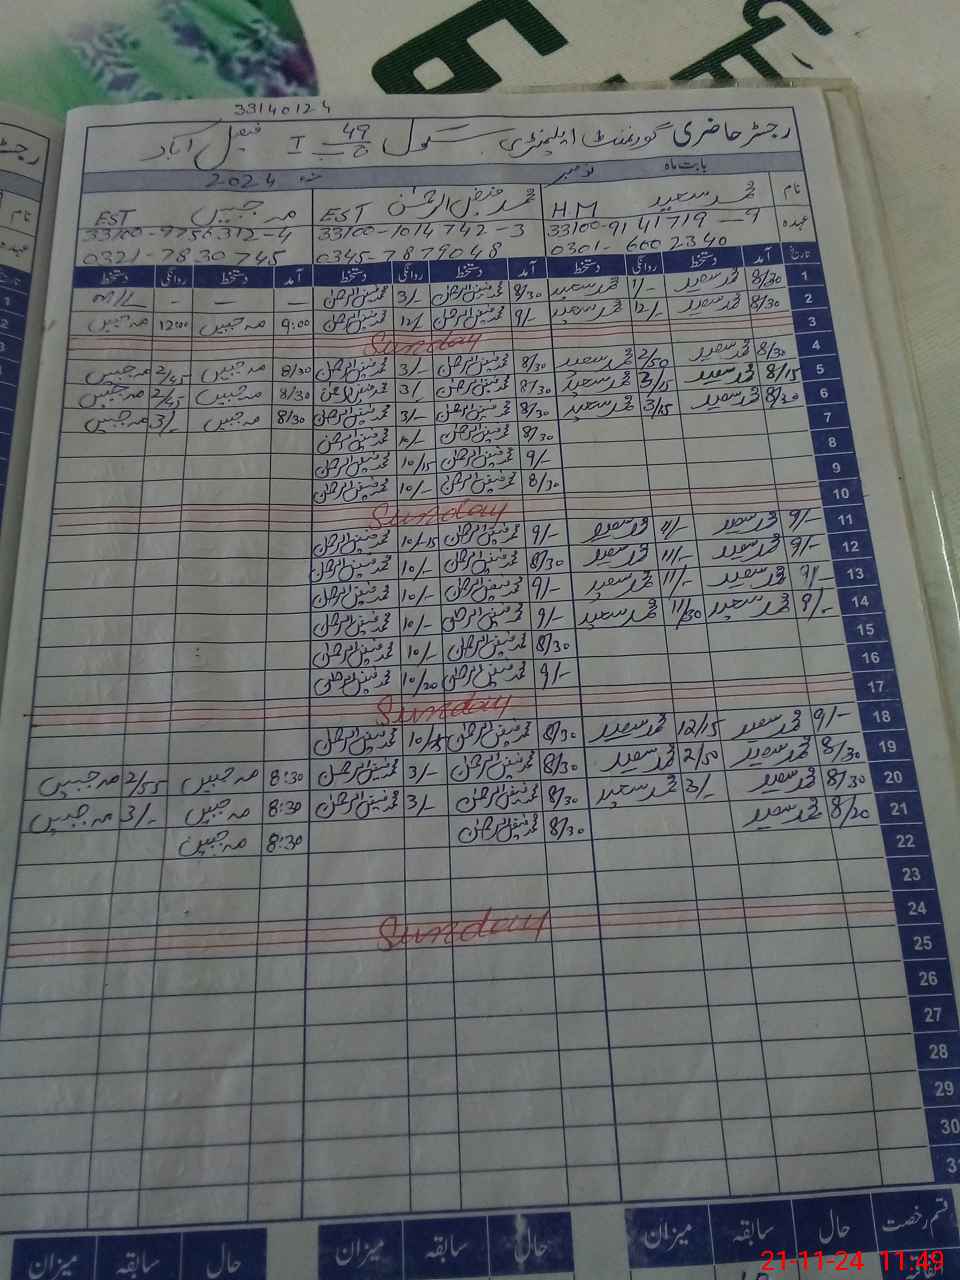 3314012-4
رجسٹر حاضری گورنمنٹ ایلیمنٹری سکول 49 ج ب I فیصل آباد
بابت ماہ نومبر سنہ 2024
نام محمد سعید H.M محمد فیض الرحمٰن EST مہ جبیں EST
عہدہ 33100-9141719-9 33100-1014742-3 33100-9756312-4
0301-6002340 0345-7879048 0321-7830745
تاریخ آمد دستخط روانگی دستخط آمد دستخط روانگی دستخط آمد دستخط روانگی دستخط
1 8/30 محمد سعید 11/- محمد سعید 8/30 محمد فیض الرحمٰن 3/- محمد فیض الرحمٰن — — — M/L
2 8/30 محمد سعید 12/- محمد سعید 9/- محمد فیض الرحمٰن 12/- محمد فیض الرحمٰن 9:00 مہ جبیں 12:00 مہ جبیں
3 Sunday
4 8/30 محمد سعید 2/50 محمد سعید 8/30 محمد فیض الرحمٰن 3/- محمد فیض الرحمٰن 8/30 مہ جبیں 2/45 مہ جبیں
5 8/15 محمد سعید 3/15 محمد سعید 8/30 محمد فیض الرحمٰن 3/- محمد فیض الرحمٰن 8/30 مہ جبیں 2/45 مہ جبیں
6 8/30 محمد سعید 3/15 محمد سعید 8/30 محمد فیض الرحمٰن 3/- محمد فیض الرحمٰن 8/30 مہ جبیں 3/- مہ جبیں
7 8/30 محمد فیض الرحمٰن 10/- محمد فیض الرحمٰن
8 9/- محمد فیض الرحمٰن 10/15 محمد فیض الرحمٰن
9 8/30 محمد فیض الرحمٰن 10/- محمد فیض الرحمٰن
10 Sunday
11 9/- محمد سعید 11/- محمد سعید 9/- محمد فیض الرحمٰن 10/-15 محمد فیض الرحمٰن
12 9/- محمد سعید 11/- محمد سعید 8/30 محمد فیض الرحمٰن 10/- محمد فیض الرحمٰن
13 9/- محمد سعید 11/- محمد سعید 9/- محمد فیض الرحمٰن 10/- محمد فیض الرحمٰن
14 9/- محمد سعید 11/30 محمد سعید 9/- محمد فیض الرحمٰن 10/- محمد فیض الرحمٰن
15 8/30 محمد فیض الرحمٰن 10/- محمد فیض الرحمٰن
16 9/- محمد فیض الرحمٰن 10/20 محمد فیض الرحمٰن
17 Sunday
18 9/- محمد سعید 12/15 محمد سعید 8/30 محمد فیض الرحمٰن محمد فیض الرحمٰن
19 8/30 محمد سعید 2/50 محمد سعید 8/30 محمد فیض الرحمٰن 3/- محمد فیض الرحمٰن 8:30 مہ جبیں 2/55 مہ جبیں
20 8/30 محمد سعید 3/- محمد سعید 8/30 محمد فیض الرحمٰن 3/- محمد فیض الرحمٰن 8:30 مہ جبیں 3/- مہ جبیں
21 8/20 محمد سعید 8/30 محمد فیض الرحمٰن 8:30 مہ جبیں
22
23
24 Sunday
25
26
27
28
29
30
31
قسم رخصت حال سابقہ میزان حال سابقہ میزان حال سابقہ میزان
21-11-24 11:49